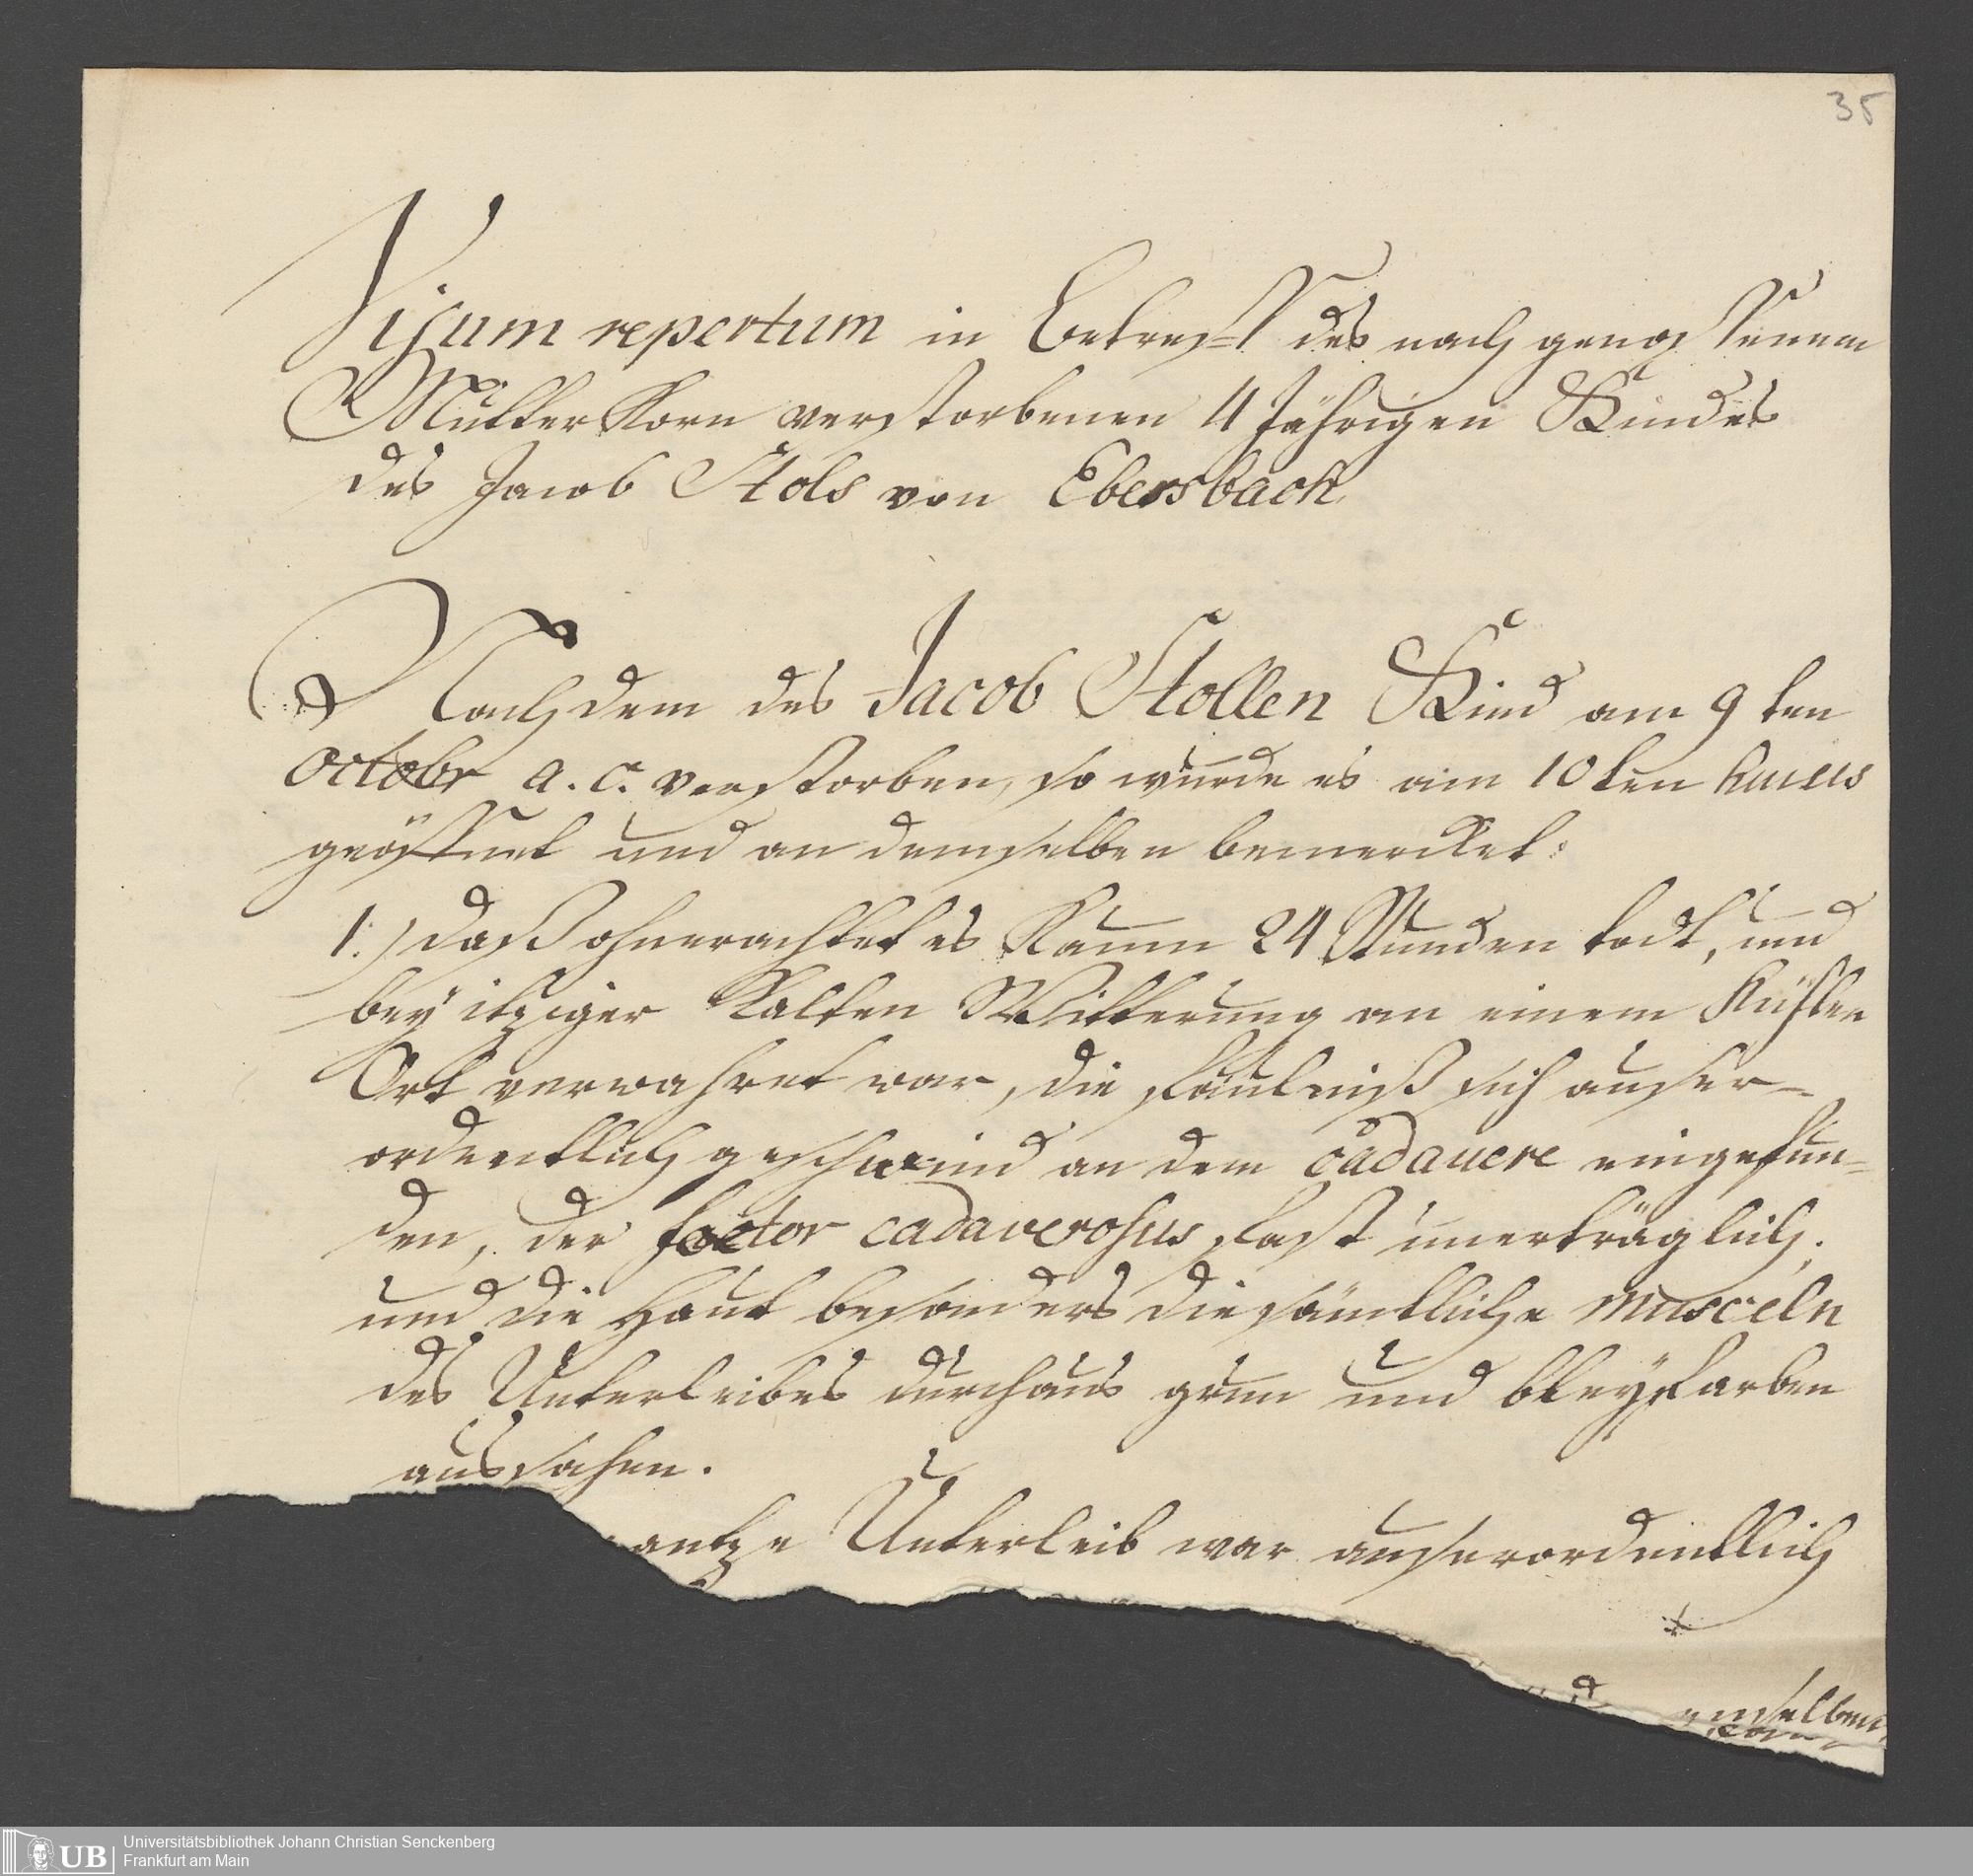 35
Visum repertum in Betreff des nach genossenem
Mutterkorn verstorbenen 4 Jährigen Kindes
des Jacob Stols von Ebersbach
Nachdem des Jacob Stollen Kind am 9ten
Octobr a. c. verstorben, so wurde es am 10ten
geöffnet und an demselben bemercket:
1.) daß ohnerachtet es kaum 24 Stunden todt, und
bey itziger kalten Witterung an einem kühlen
Ort verwahret war, die Fäulniß sich auser-
ordentlich geschwind an dem cadavere eingefun-
den, der foetor cadaverosus fast unerträglich,
und die Haut besonders die sämtliche musceln
des Unterleibes durchaus grün und bleyfarben
aussahen.
antze Unterleib war auserordentlich
emselben
Universitätsbibliothek Johann Christian Senckenberg
UB Frankfurt am Main